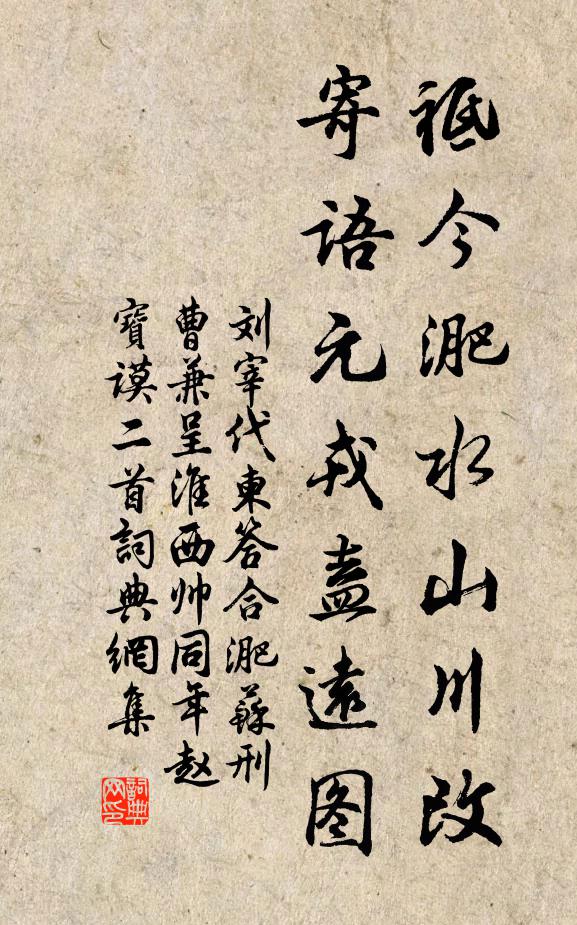 祗今淝水山川改
寄语元戎盍遠图
刘宰代東答合淝蘇刑
曹兼呈淮西帅同年赵
寶谟二首詞典網集
詞典
网印